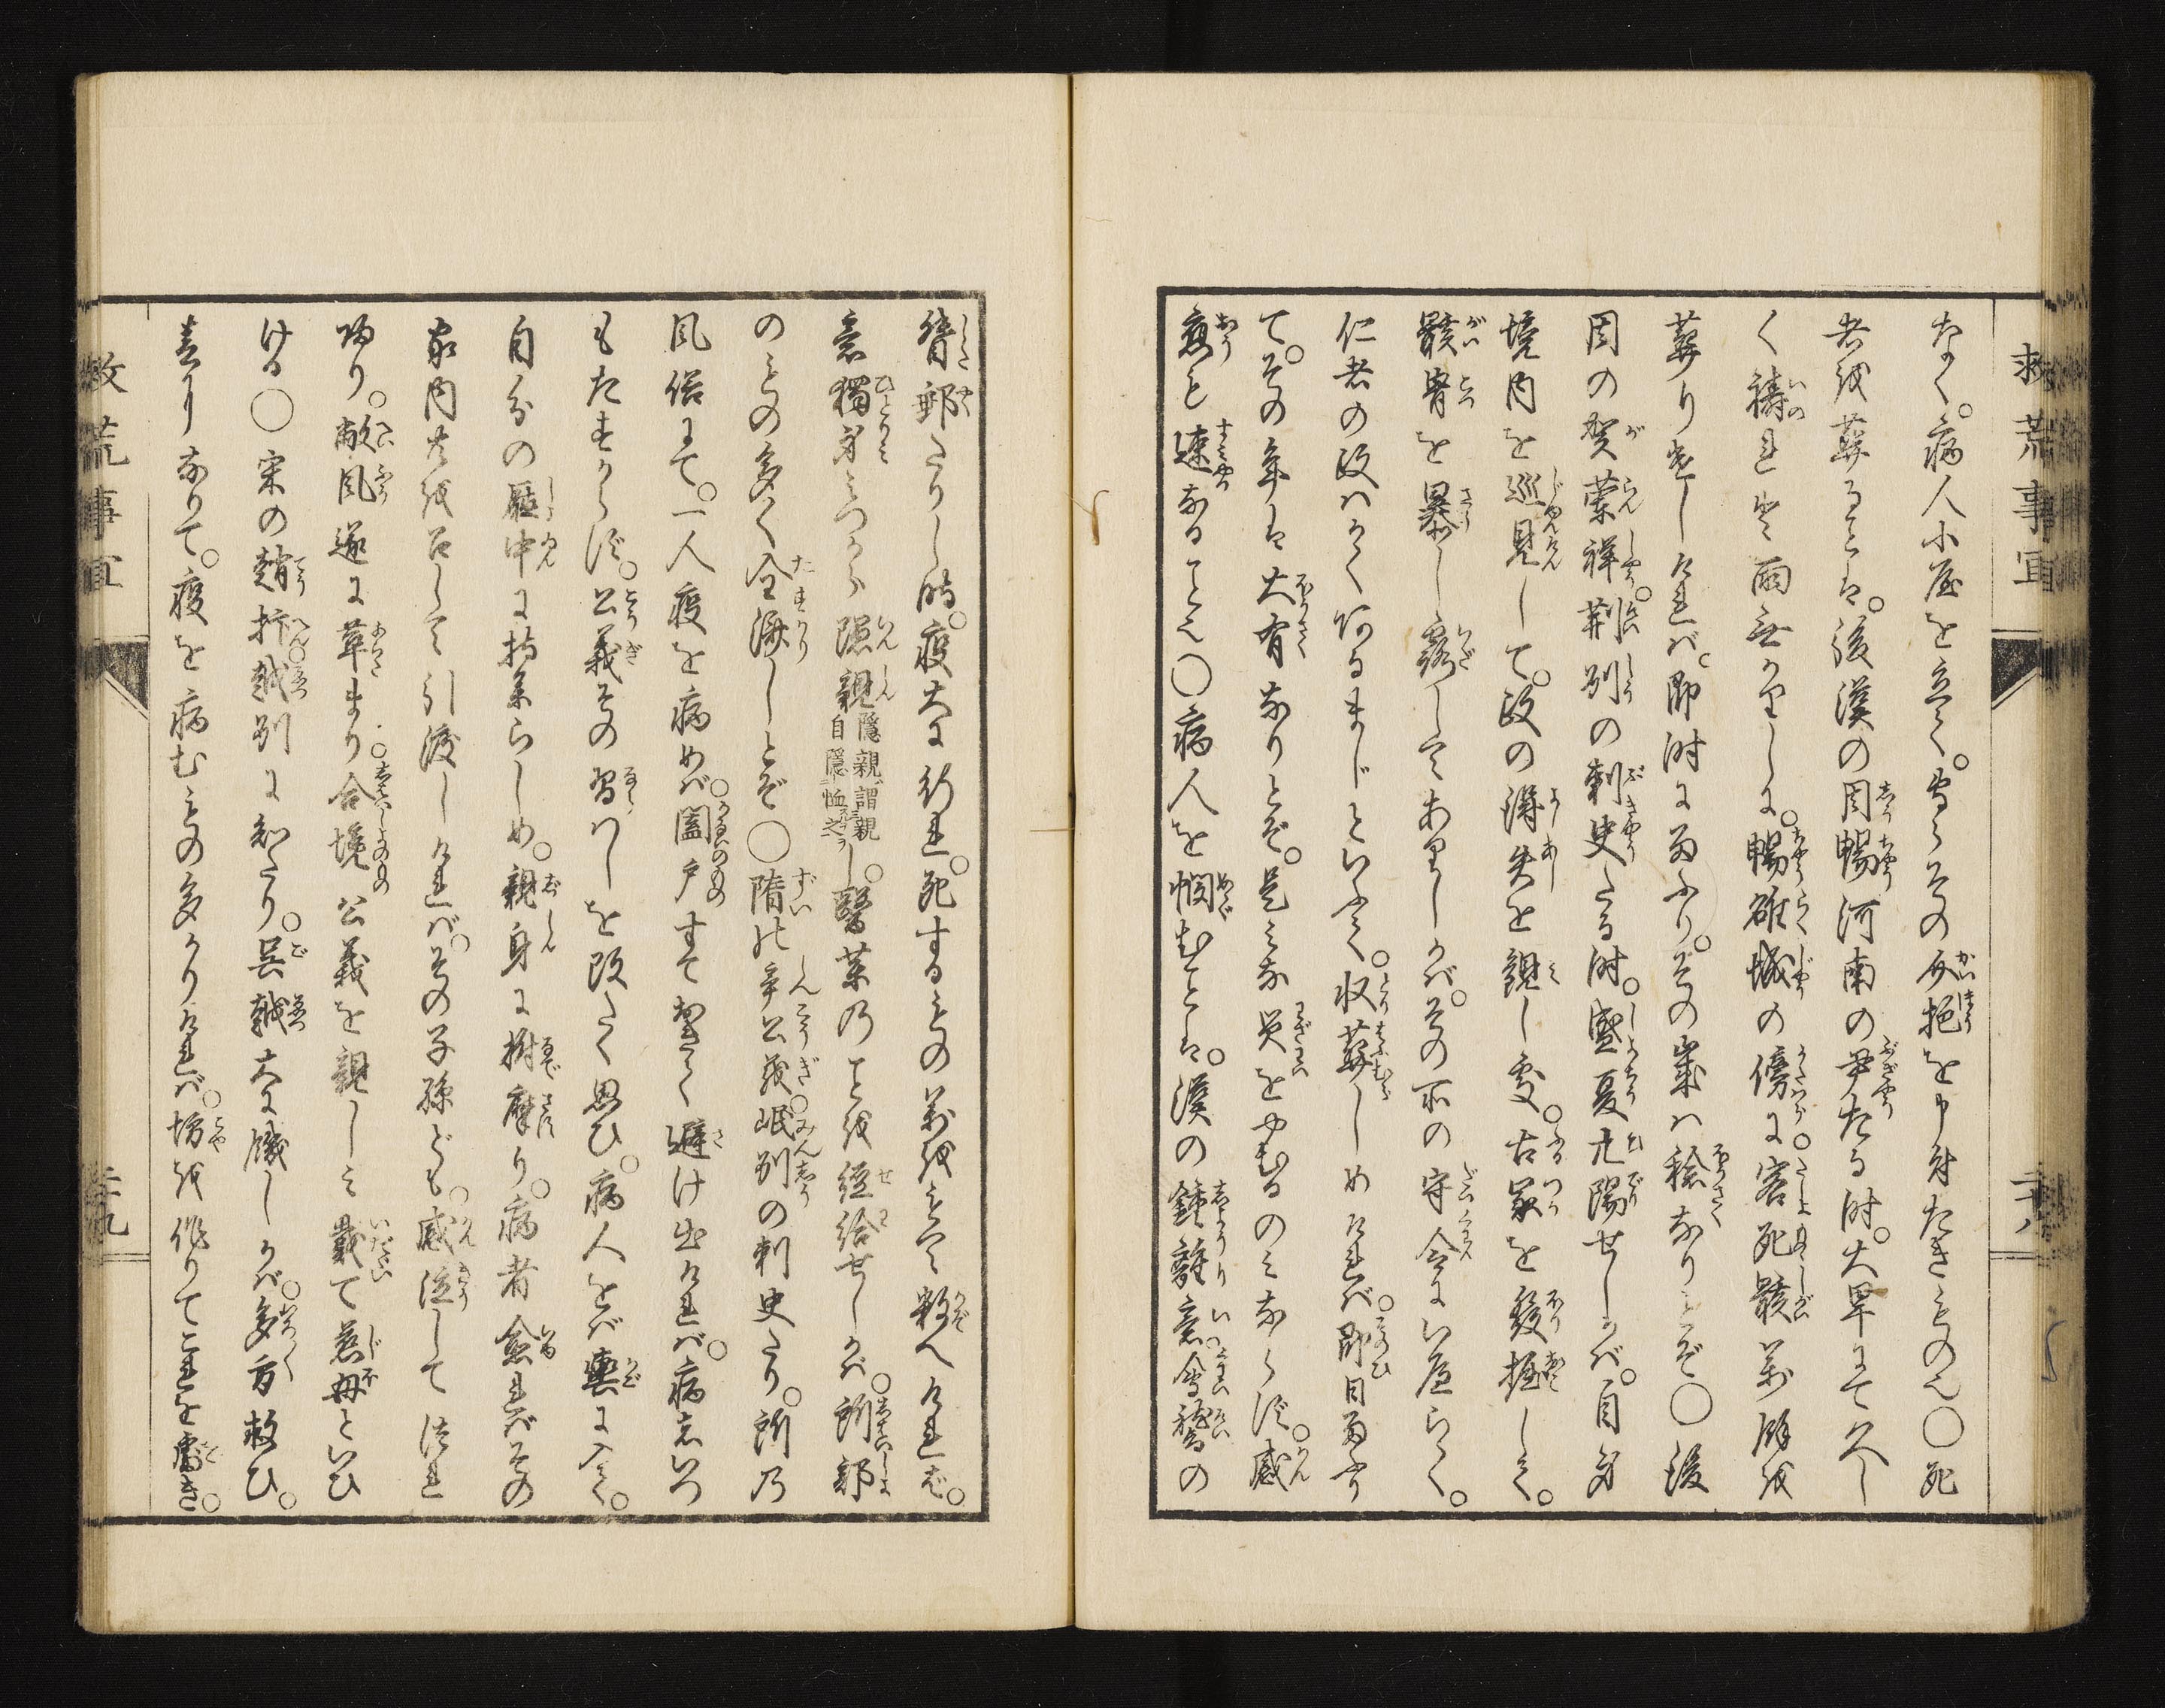 救荒事宜
二十八
なく。病人小屋を立て。専らその介抱を申付たきものなり〇死
者を葬ることは。後漢の周暢河南の尹たる時。大旱にて久し
く祷れども雨無かりしに。暢雒城の傍に。客死骸萬餘を
葬りましければ。即時に雨ふり。その歳は稔なりしとぞ〇後
周の賀蘭祥。荊州の刺史たる時。盛夏亢陽せしかば。自身
境内を巡見して。政の得失を観し処。古冢を発掘して。
骸骨を暴し露してありしかば。その所の守令にいへらく。
仁者の政はかくあるまじといふて。収葬しめければ。即日雨ふり
て。その年は大有なりとぞ。是みな災をやむるのみならず。感
應も速なることなり〇病人を憫むことは。漢の鍾離意。會稽の
督郵たりし時。疫大に行れ。死するもの萬をもて数へければ。
意獨身みづから隠親隠親謂親自隠恤之し。醫薬のことを経給せしかば。所部
のもの多く全済しとぞ〇隋の辛公義。岷州の刺史たり。所の
風俗にて。一人疫を病めば。闔戸すて置きて避け出ければ。病あいつ
もたまからず。公義その習はしを改たく思ひ。病人をば輿に入て。
自分の廳中に持来らしめ。親身に撫摩り。病者愈ればその
家内共を召して引渡しければ。その子孫ども。感泣して つれ
帰り。敝風遂に革まり。合境公義を親しみ戴て慈母といひ
ける〇宋の趙抃。越州に知たり。呉越大に饑しかば。多方救ひ。
まゝりありて。疫を病むもの多かりければ。坊を作りてこれを處き。
救荒事宜
二十九